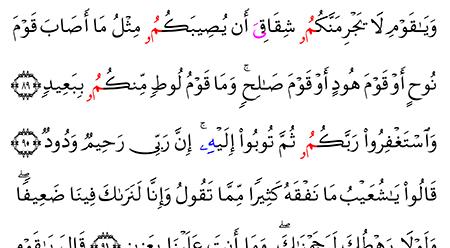 وَيَٰقَوْمِ لَا يَجْرِمَنَّكُمُۥ شِقَاقِيَ أَن يُصِيبَكُمُۥ مِثْلُ مَا أَصَابَ قَوْمَ
نُوحٍ أَوْ قَوْمَ هُودٍ أَوْ قَوْمَ صَٰلِحٍۚ وَمَا قَوْمُ لُوطٍ مِّنكُمُۥ بِبَعِيدٍ ٨٩
وَٱسْتَغْفِرُوا۟ رَبَّكُمُۥ ثُمَّ تُوبُوا۟ إِلَيْهِۦۚ إِنَّ رَبِّى رَحِيمٌ وَدُودٌ ٩٠
قَالُوا۟ يَٰشُعَيْبُ مَا نَفْقَهُ كَثِيرًا مِّمَّا تَقُولُ وَإِنَّا لَنَرَىٰكَ فِينَا ضَعِيفًاۖ
وَلَوْلَا رَهْطُكَ لَرَجَمْنَٰكَۖ وَمَا أَنتَ عَلَيْنَا بِعَزِيزٍ ٩١ قَالَ يَٰقَوْمِ